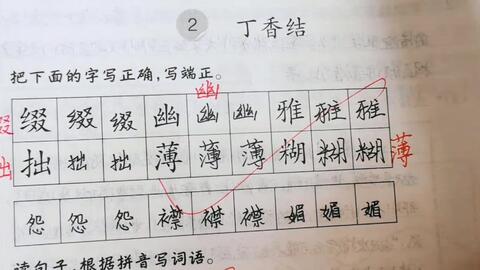 2 丁香结
把下面的字写正确,写端正。
幽
缀 缀 缀 缀 幽 幽 幽 雅 雅 雅
拙 拙 拙 拙 薄 薄 薄 糊 糊 糊 薄
怨 怨 怨 襟 襟 襟 媚 媚 媚
读句子,根据拼音写词语。